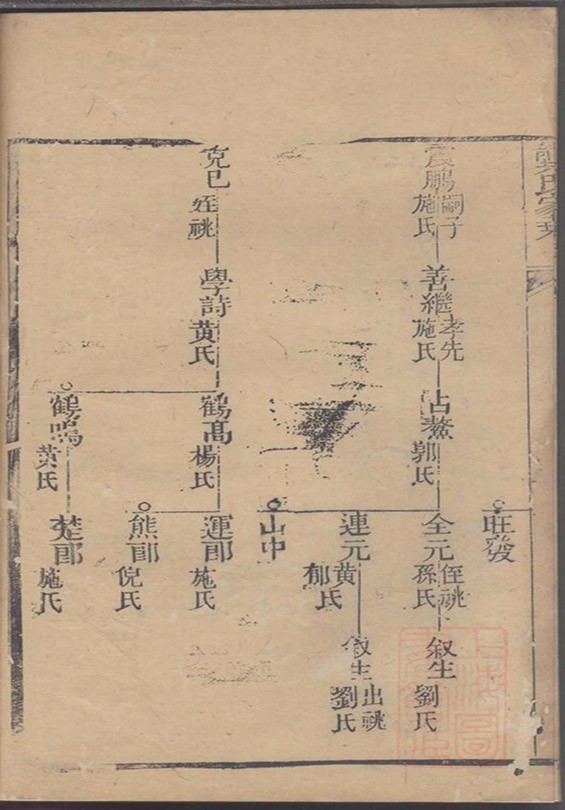 氏家
旺發
震鵬 嗣子 施氏
善繼 孝先 施氏
占鰲 郭氏
全元 侄祧 孫氏
叙生 劉氏
連元 黄 郁氏
叙生 出祧 劉氏
山中
克巳 姪祧
學詩 黄氏
鶴高 楊氏
運郎 施氏
熊郎 倪氏
鶴鳴 黃氏
楚郎 施氏